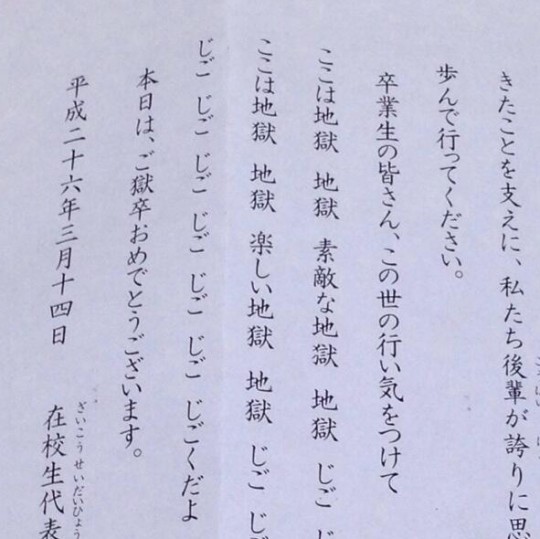 きたことを支えに、私たち後輩が誇りに思
歩んで行ってください。
卒業生の皆さん、この世の行い気をつけて
ここは地獄 地獄 素敵な地獄 地獄 じご じ
ここは地獄 地獄 楽しい地獄 地獄 じご じ
じご じご じご じご じご じご じごくだよ
本日は、ご獄卒おめでとうございます。
平成二十六年三月十四日
在校生代表
ざいこうせいだいひょう